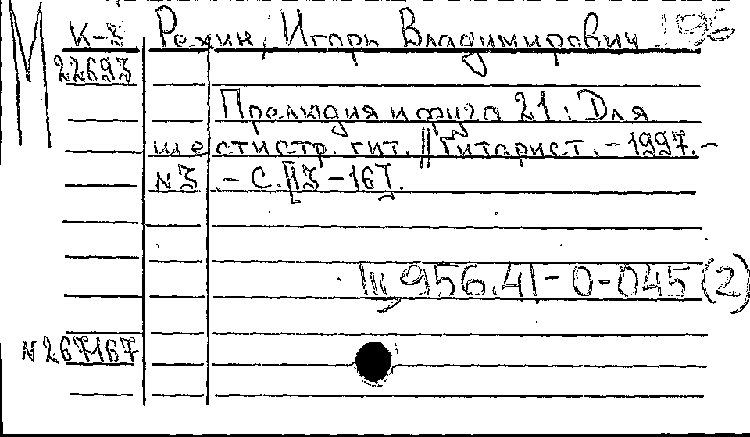 М
К-3 Рехин, Игорь Владимирович 196
22693
Прелюдия и фуга 21: Для
шестистр. гит. // Гитарист. - 1997. -
N3. - С. [13-16].
III, 956.41-0-045 (2)
N267167